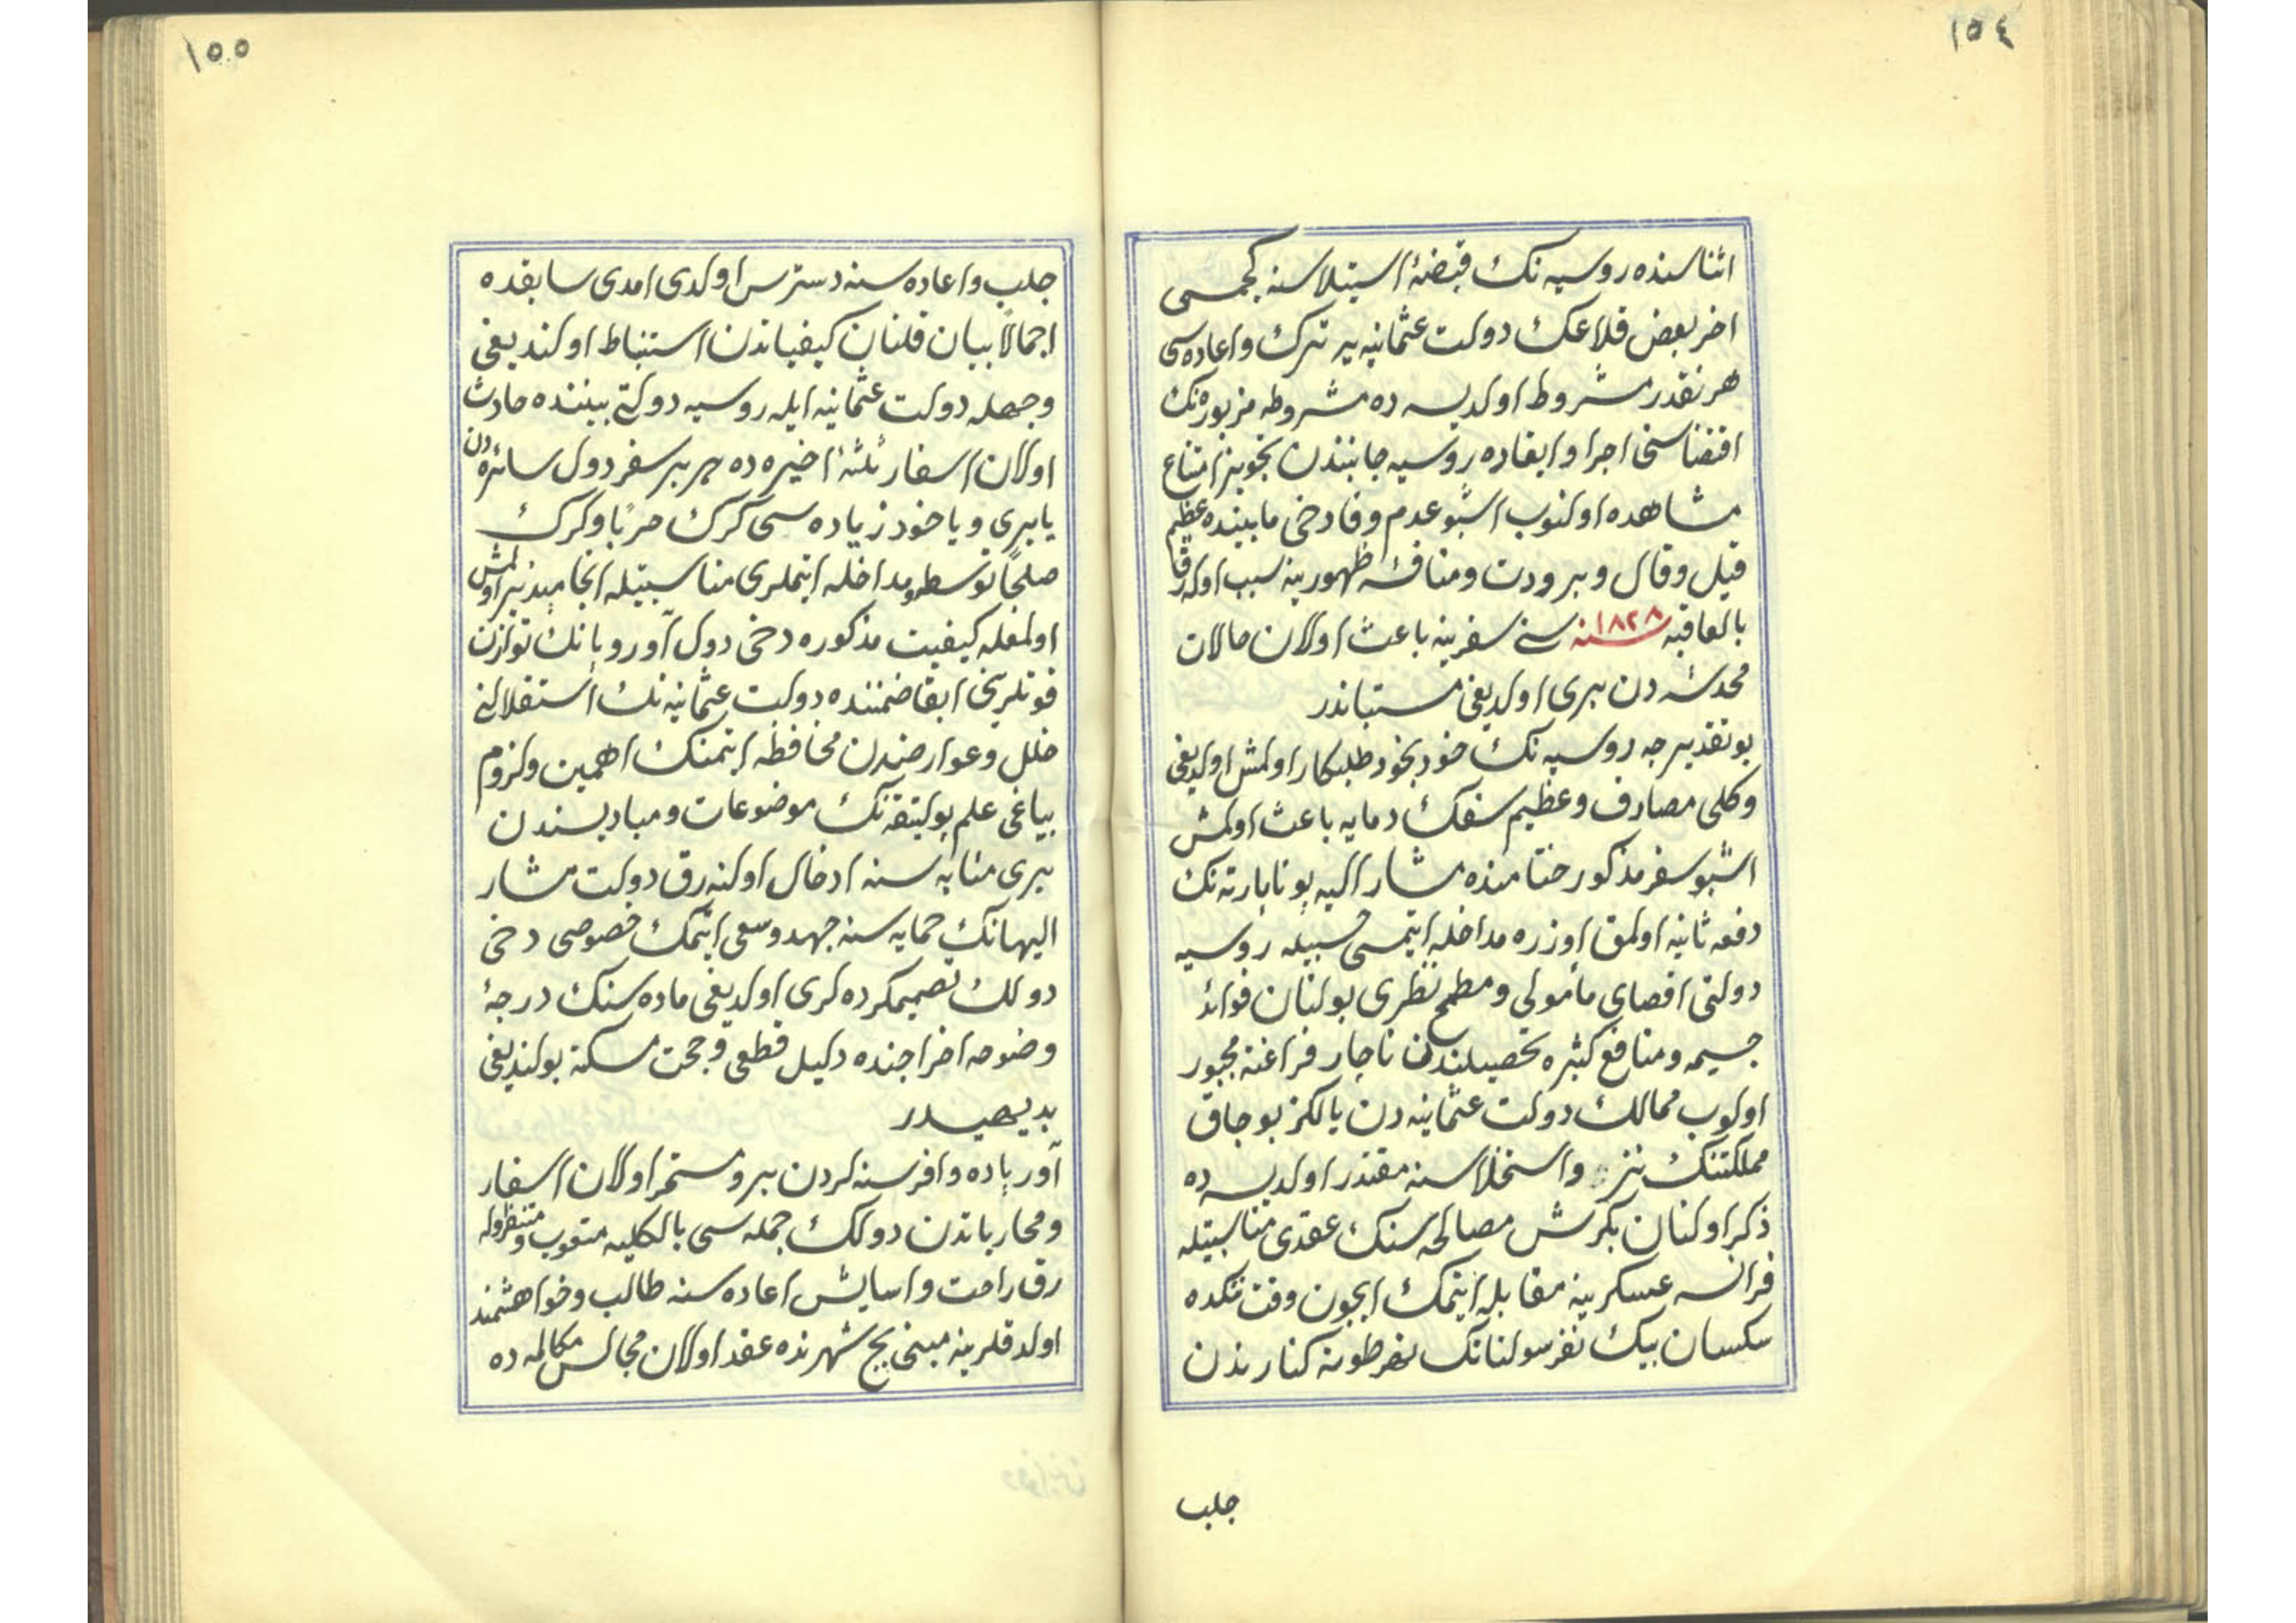 ١٥٤
اثناسنده روسیه نك قبضۀ استیلاسنه کچمسی
اخر بعض قلاعك دولت عثمانیه یه ترك و اعاده سی
هر نقدر مشروط اولدیسه ده مشروطه مزبوره نك
اقتضاسنی اجرا و ایفاده روسیه جانبندن تجویز امتناع
مشاهده اولنوب اشبو عدم وفا دخی مابینده عظیم
قیل و قال و برودت و منافسه ظهورینه سبب اوله رق
بالعاقبه سنه ١٨٢٨ سی سفرینه باعث اولان حالات
محدثه دن بری اولدیغی مستباندر
بو تقدیرجه روسیه نك خود بخود طلبکار اولمش اولدیغی
و کلی مصارف و عظیم سفك دمایه باعث اولمش
اشبو سفر مذکور ختامنده مشار الیه بوناپارته نك
دفعه ثانیه اولمق اوزره مداخله ایتمسی حسبیله روسیه
دولتی اقصای مأمولی و مطمح نظری بولنان فوائد
جسیمه و منافع کثیره تحصیلندن ناچار فراغنه مجبور
اولوب ممالك دولت عثمانیه دن یالکز بوجاق
مملکتنك نزع و استخلاسنه مقتدر اولدیسه ده
ذکر اولنان بکرش مصالحه سنك عقدی مناسبتیله
فرانسه عسکرینه مقابله ایتمك ایچون وقت تنکده
سکسان بیك نفر سولناتك نهر طونه کنارندن
جلب
١٥٥
جلب و اعاده سنه دسترس اولدی امدی سابقده
اجمالاً بیان قلنان کیفیاتدن استنباط اولندیغی
وجهله دولت عثمانیه ایله روسیه دولتی بیننده حادث
اولان اسفار ثلثۀ اخیره ده هر بر سفر دول سائره دن
یا بری و یا خود زیاده سی کرك حرباً و کرك
صلحاً توسط و مداخله ایتملری مناسبتیله انجامپذیر اولمش
اولمغله کیفیت مذکوره دخی دول آوروپانك توازن
قوتلرینی ابقا ضمننده دولت عثمانیه نك استقلالنی
خلل و عوارضدن محافظه ایتمنك اهمیت و لزومی
بیاغی علم پولتیقه نك موضوعات و مبادیسندن
بری مثابه سنه ادخال اولنه رق دولت مشار
الیهانك حمایه سنه جهد و سعی ایتمك خصوصی دخی
دولك تصمیمکرده لری اولدیغی ماده سنك درجۀ
وضوحه اخراجنده دلیل قطعی و حجت مسکته بولندیغی
بدیهیدر
آوروپاده وافر سنه لردن برو مستمر اولان اسفار
و محارباتدن دولك جمله سی بالکلیه متعوب و متنفر اوله
رق راحت و اسایش اعاده سنه طالب و خواهشمند
اولدقلرینه مبنی بچ شهرنده عقد اولان مجالس مکالمه ده